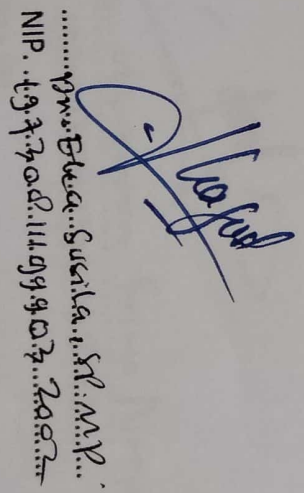 Dra. Elva Susila, SP. MP.
NIP. 19730811 199903 2002